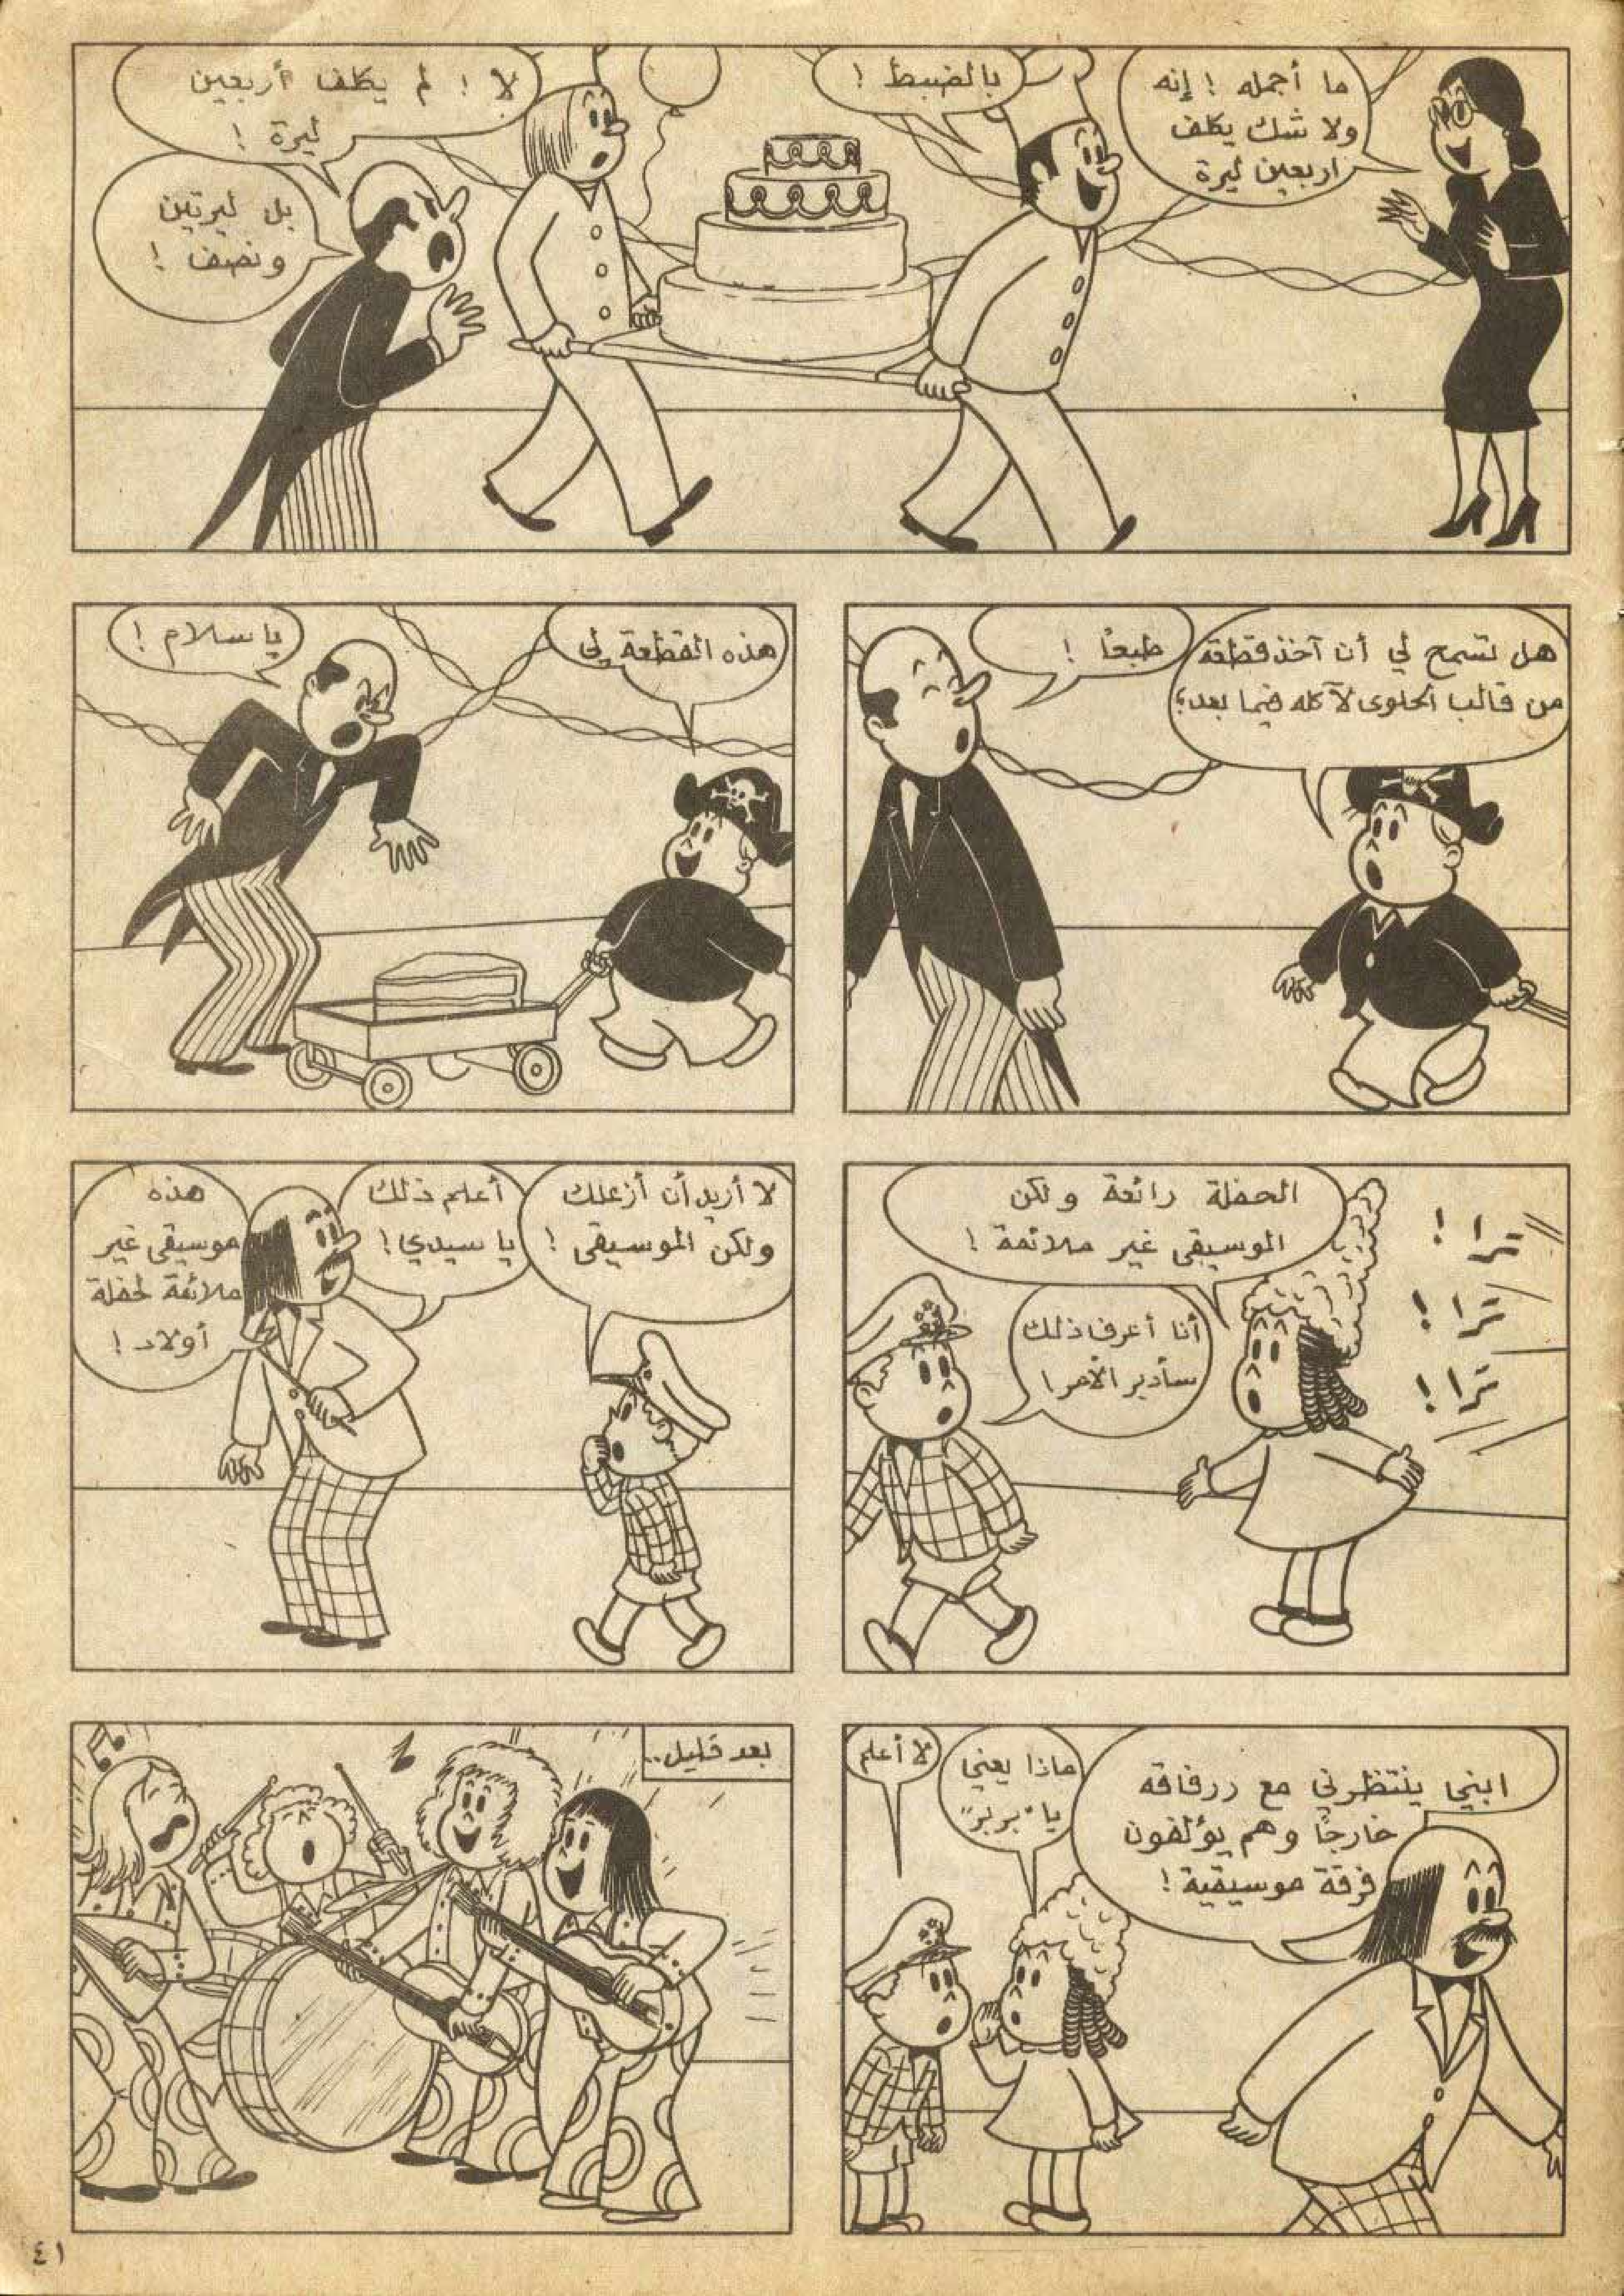 ما أجمله ! إنه
ولا شك يكلف
اربعين ليرة
بالضبط !
لا ! لم يكلف أربعين
ليرة !
بل ليرتين
ونصف !
هل تسمح لي أن آخذ قطعة
من قالب الحلوى لآكله فيما بعد؟
طبعاً !
هذه القطعة لي
يا سلام !
ترا !
ترا !
ترا !
الحفلة رائعة ولكن
الموسيقى غير ملائمة !
أنا أعرف ذلك
سأدبر الأمر !
لا أريد أن أزعلك
ولكن الموسيقى !
أعلم ذلك
يا سيدي !
هذه
موسيقى غير
ملائمة لحفلة
أولاد !
ابني ينتظرني مع ررفاقه
خارجًا وهم يؤلفون
فرقة موسيقية !
ماذا يعني
يا "بربر"
لا أعلم
بعد قليل..
٤١